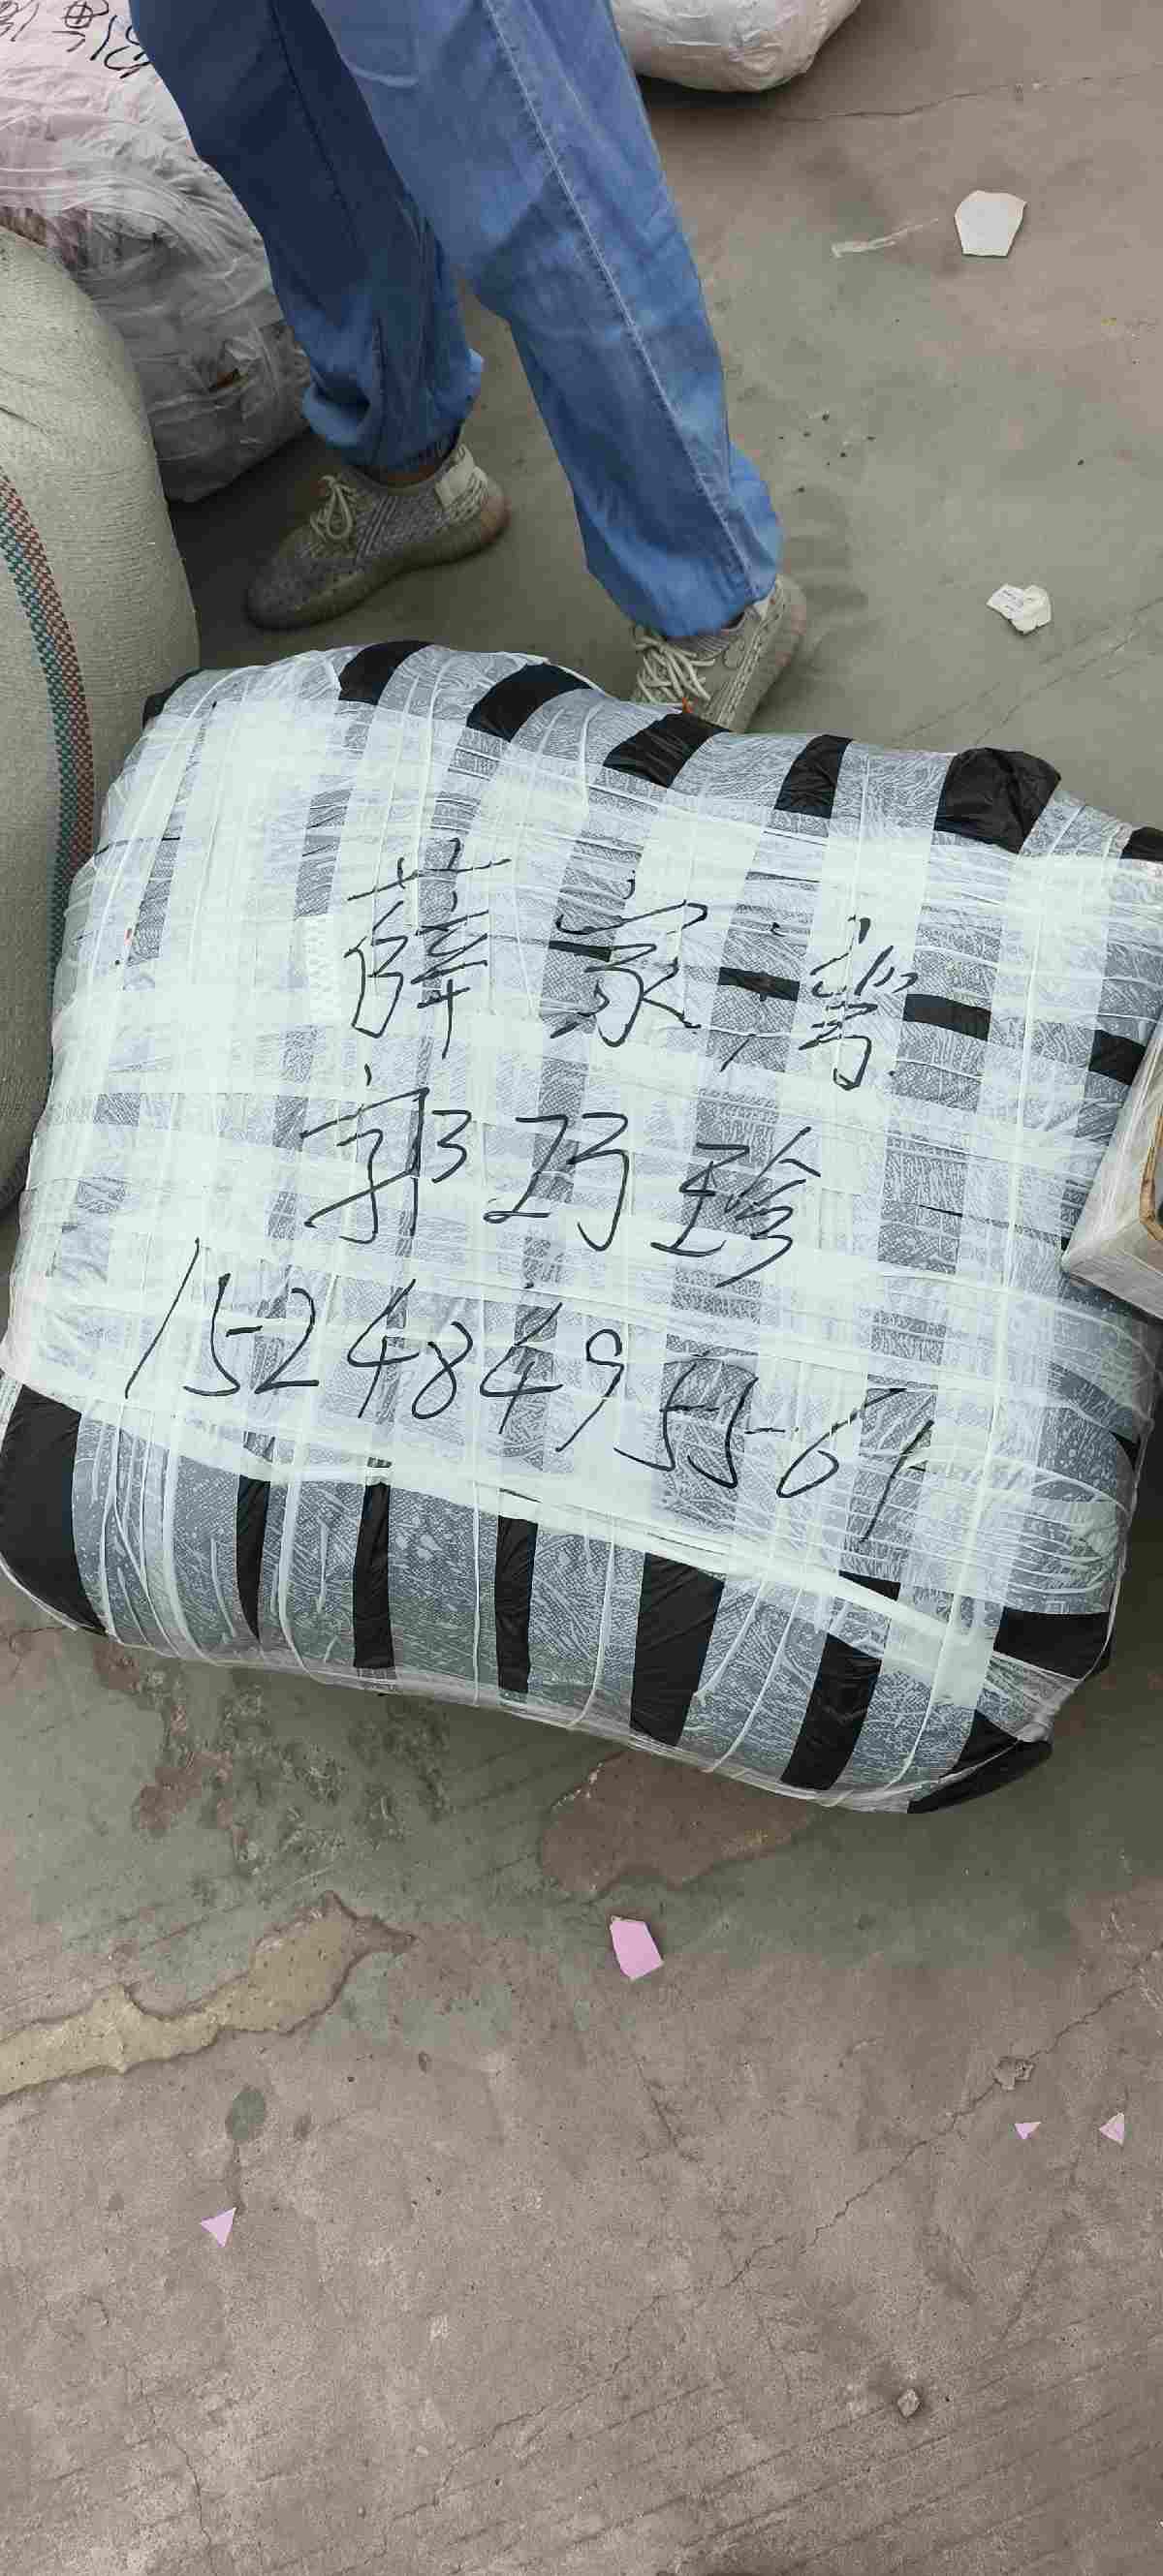 薛家湾
郭巧珍
15248495561